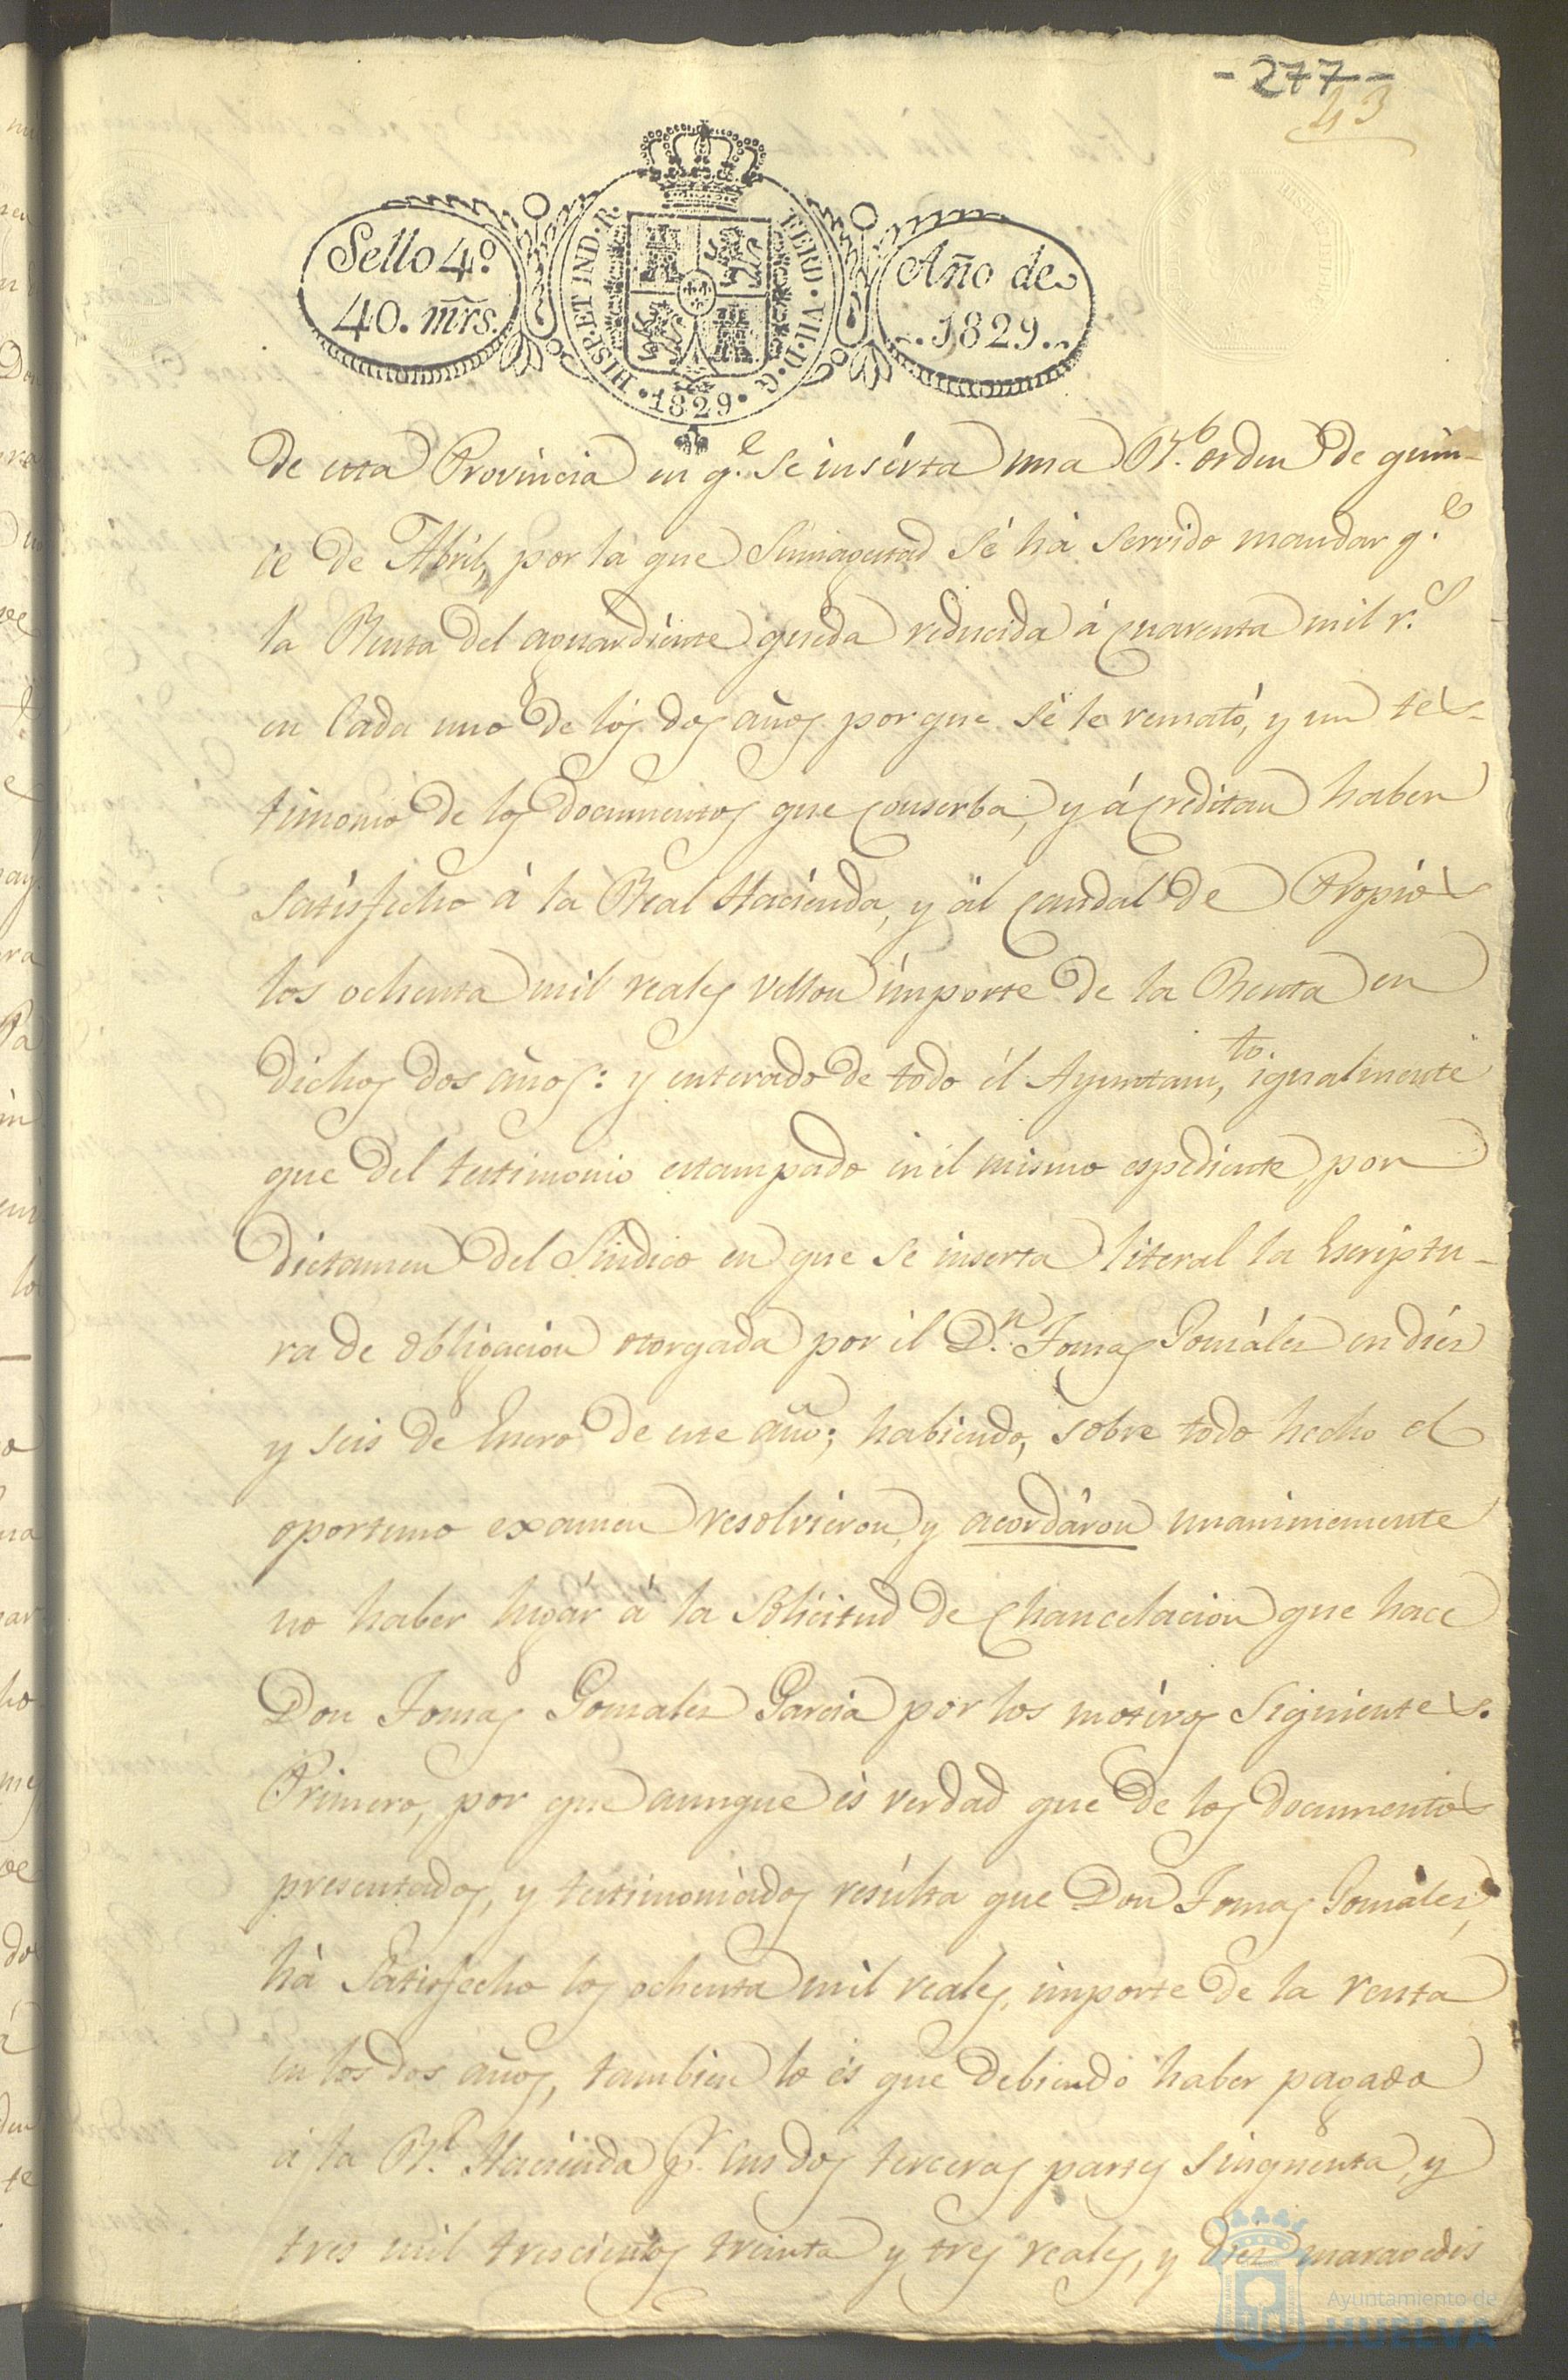 - 277 -
43
Sello 4º.
40. mrs.
HISP. ET IND. R. FERD. VII. D. G. 1829
Año de
1829.
de esta Provincia en q.e se insérta una Rl. orden de quin-
ce de Abril, por la que Sumagestad sé há servido mandar q.e
la Renta del aguardiente queda reducida á cuarenta mil r.s
en Cada uno de lós dos años porque sé le remató, y un tés-
timonio de los documentos que conserba, y ácreditan haber
satisfecho á la Real Hacienda, y ál caudal de Propios
los ochenta mil reales vellon importe de la Renta en
dichos dos años: y enterado de todo él Ayuntam.to igualmente
que del testimonio estampado en él mismo espediente, por
dictamen del Sindico en que se inserta literal la Escriptu-
ra de obligacion otorgada por él D.n Tomas Gonzáles en dies
y seis de Enero de este año; habiendo, sobre todo hecho el
oportuno examen resolvieron, y acordáron unanimemente
no haber lugár á la Solicitud de Chancelacion que hace
Don Tomas Gonzales Garcia por los motivos Siguientes.
Primero, por que aunque és verdad que de los documentos
presentados, y testimoniados resúlta que Don Tomas Gonzáles,
há Satisfecho los ochenta mil reales, importe de la renta
en los dos años, tambien lo és que debiendo haber pagado
á la Rl. Hacienda p.r sus dos terceras partes Sinquenta, y
tres mil trescientos treinta y tres reales, y dies maravedis
Ayuntamiento de
HUELVA